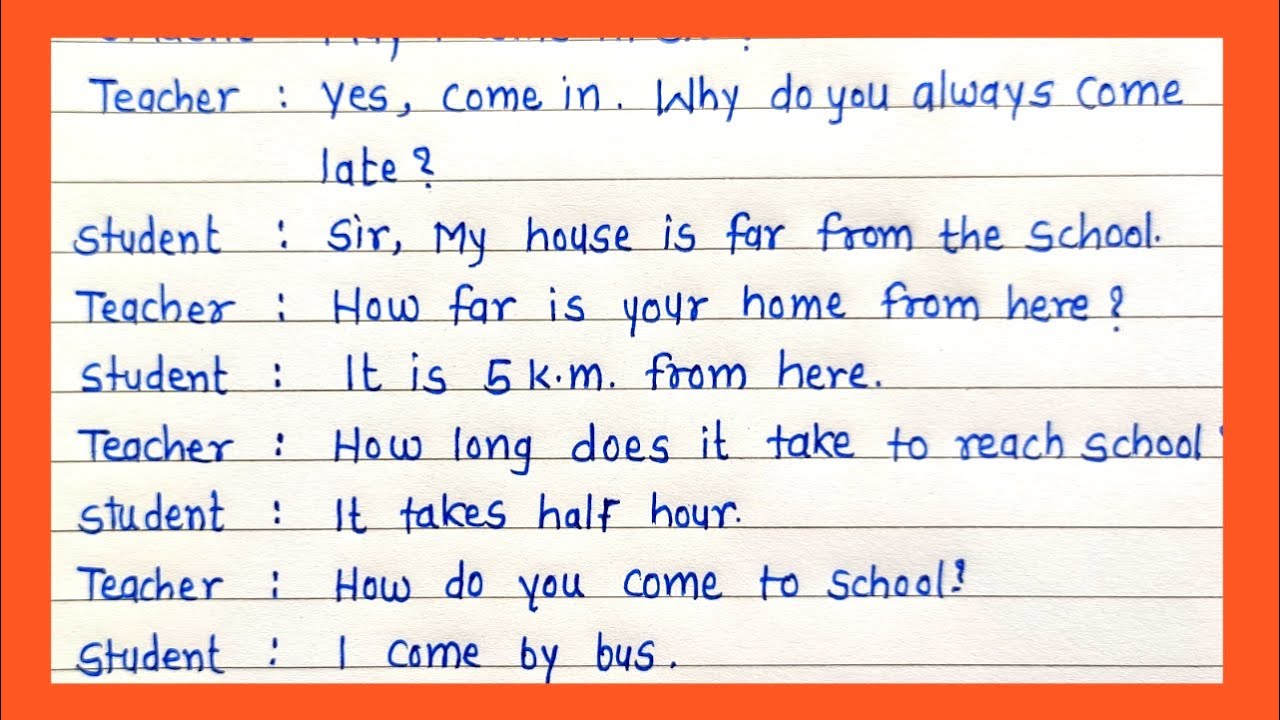 Teacher : yes, come in. Why do you always come
late ?
student : Sir, My house is far from the school.
Teacher : How far is your home from here ?
student : It is 5 k.m. from here.
Teacher : How long does it take to reach school
student : It takes half hour.
Teacher : How do you come to school?
student : I come by bus.